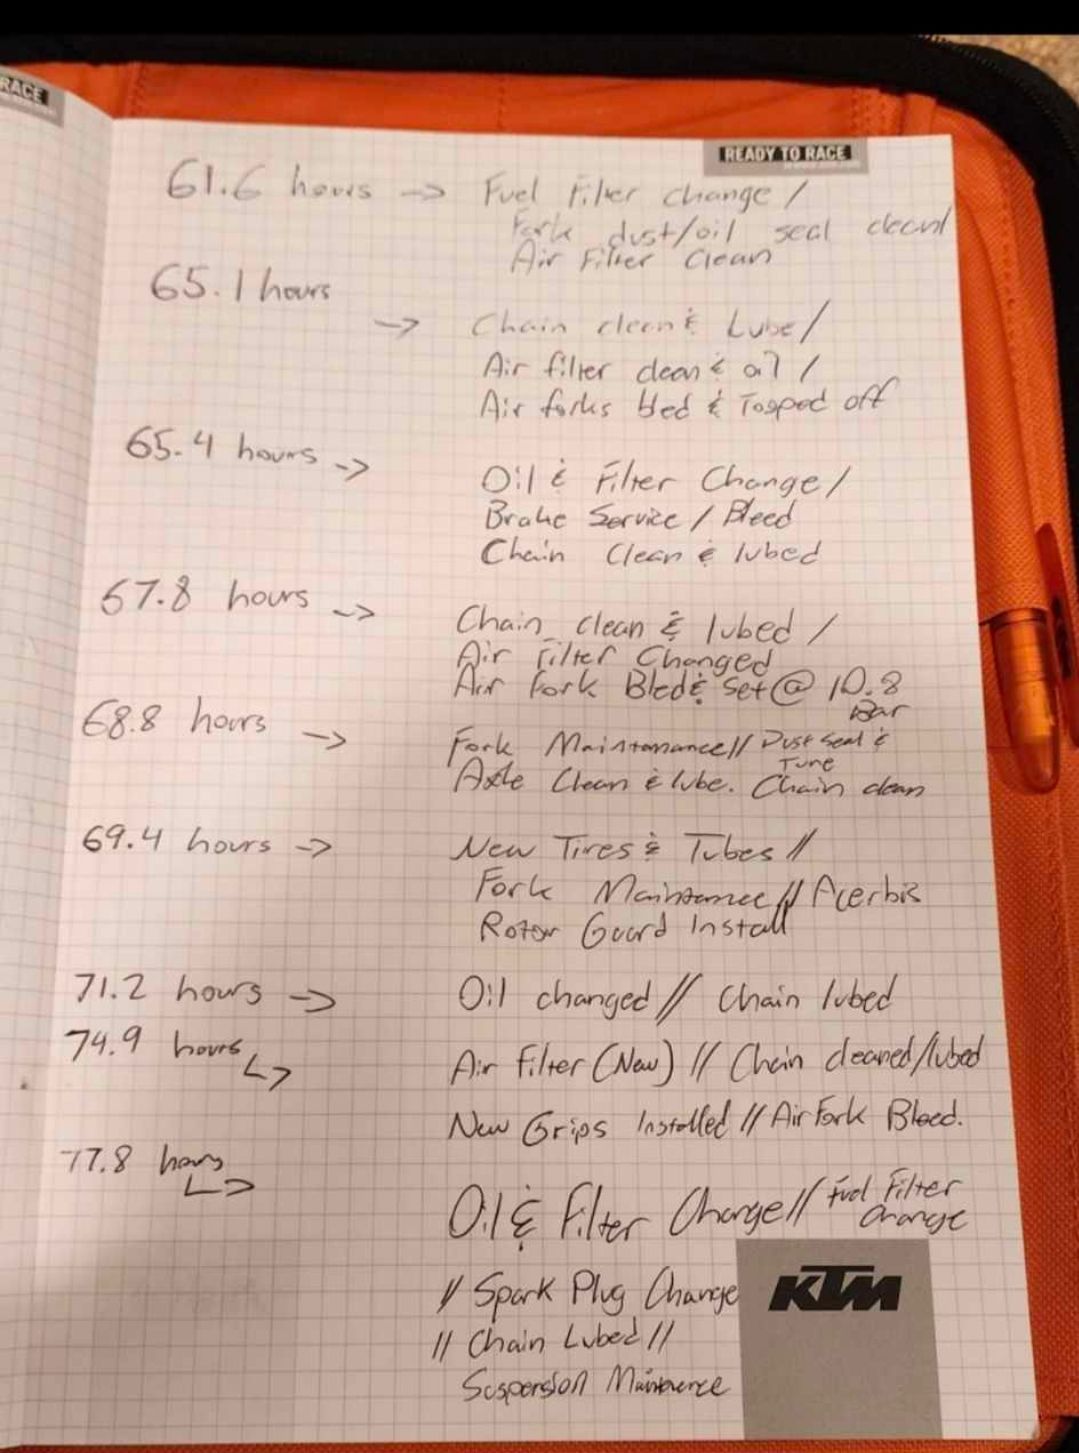 RACE
READY TO RACE
61.6 hours -> Fuel Filter change /
Fork dust/oil seal clean/
Air Filter Clean
65.1 hours
-> Chain clean & Lube /
Air filter clean & oil /
Air forks bled & Topped off
65.4 hours -> Oil & Filter Change /
Brake Service / Bleed
Chain Clean & lubed
67.8 hours -> Chain clean & lubed /
Air Filter Changed
Air Fork Bled & Set @ 10.8
Bar
68.8 hours -> Fork Maintanance // Dust Seal &
Tune
Axle Clean & lube. Chain clean
69.4 hours -> New Tires & Tubes //
Fork Maintenance // Acerbis
Rotor Guard Install
71.2 hours -> Oil changed // Chain lubed
74.9 hours
↳ Air Filter (New) // Chain cleaned/lubed
New Grips Installed // Air Fork Bleed.
77.8 hours
↳ Oil & Filter Change // Fuel Filter
Change
// Spark Plug Change
// Chain Lubed //
Suspension Maintenence
KTM